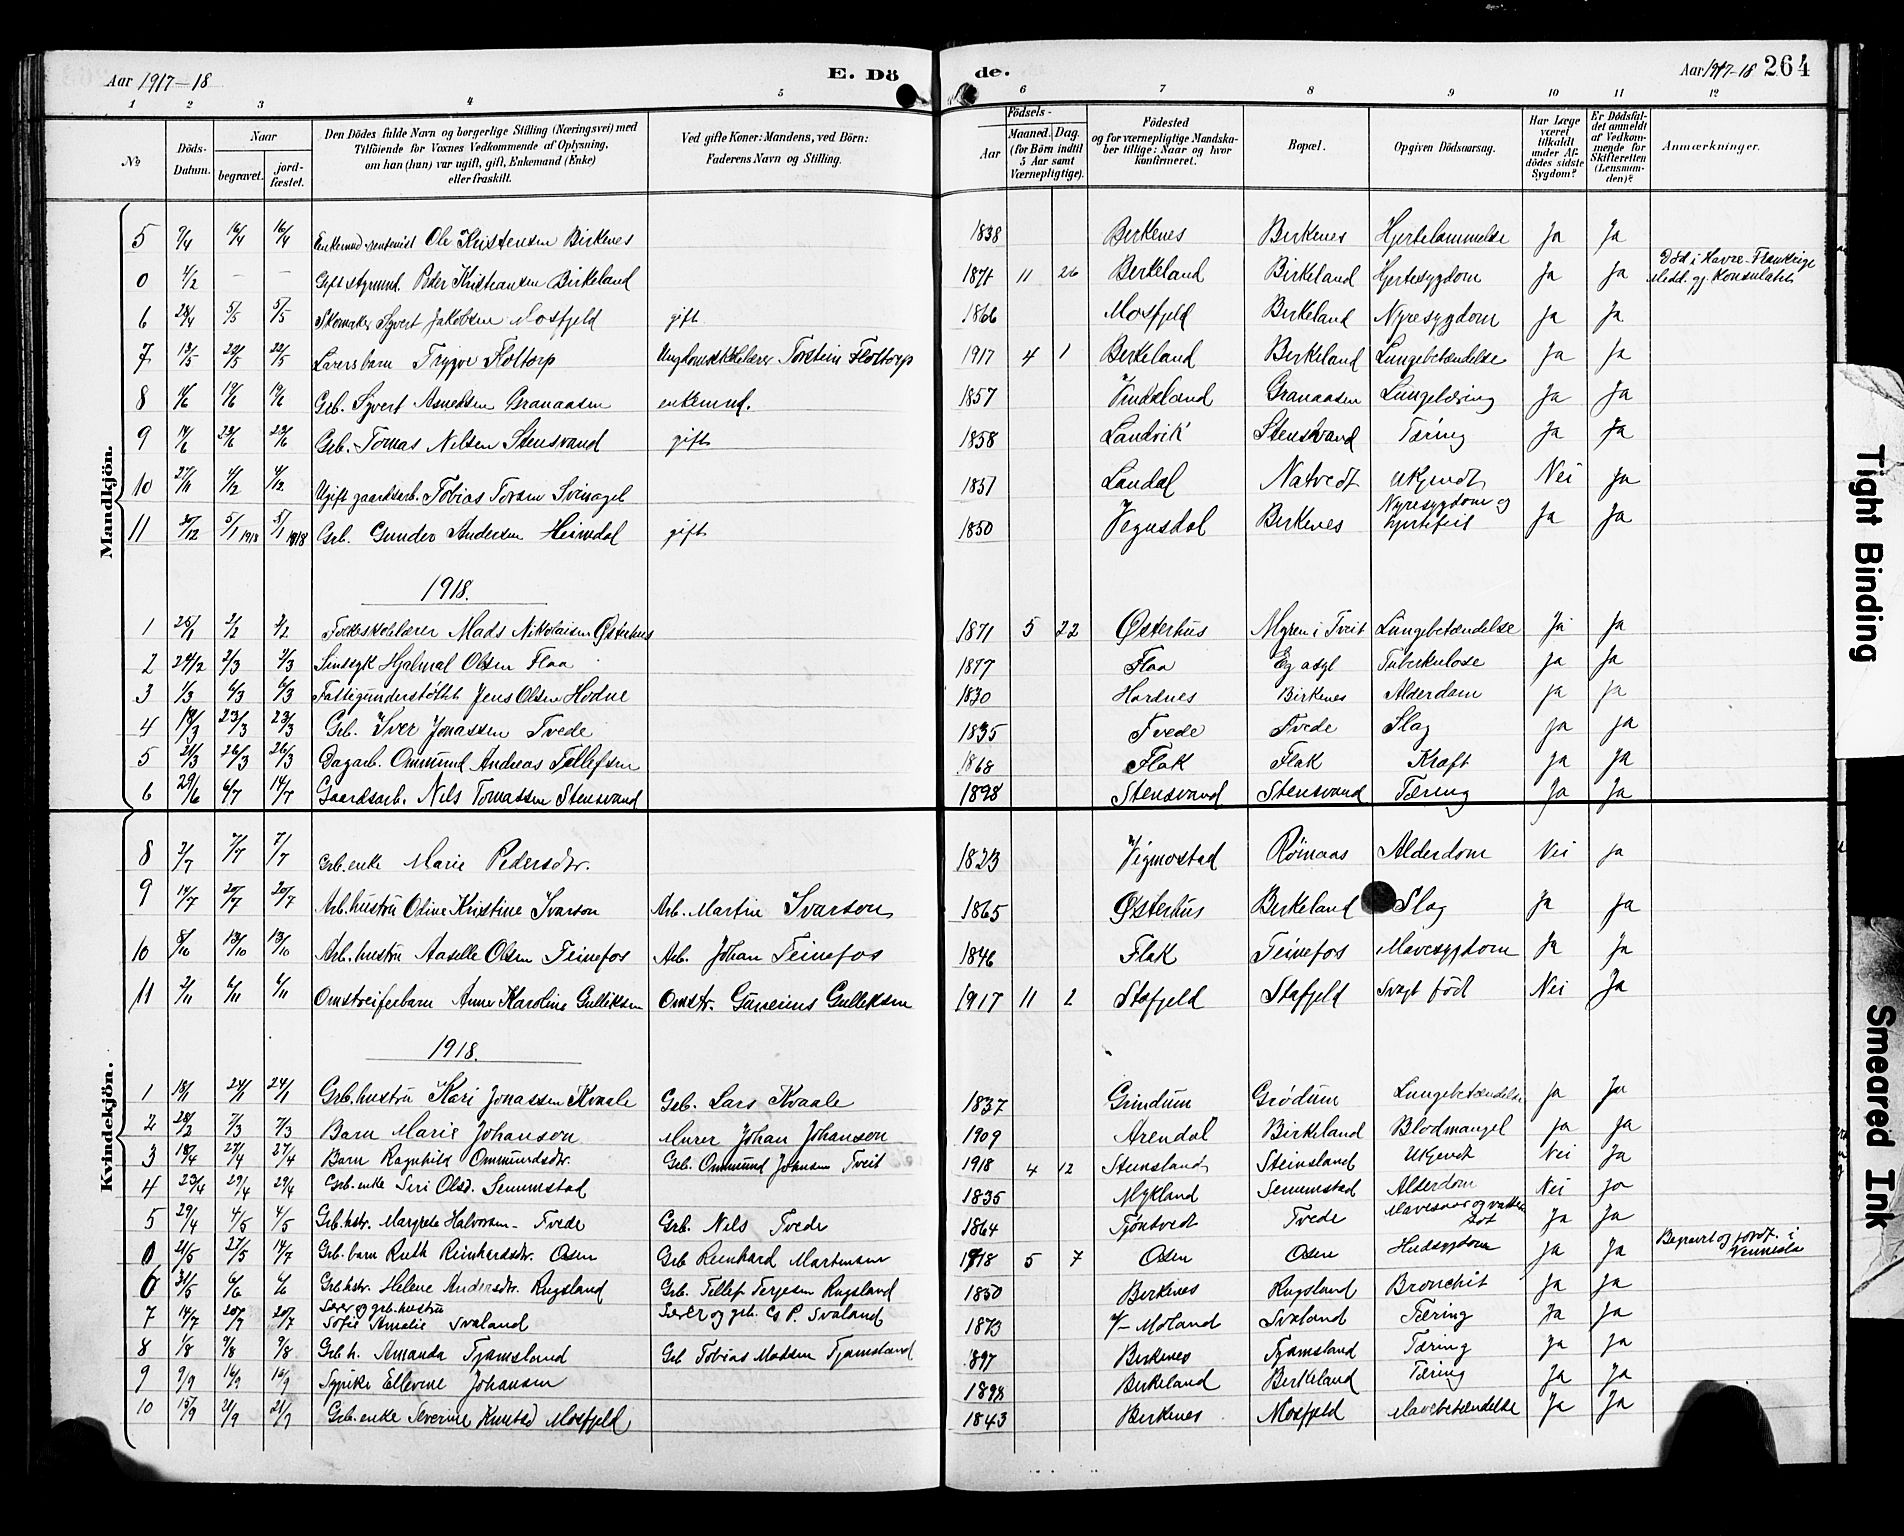 Aar 1917-18 E. Dö de. Aar 1917-18 264
1 2 3 4 5 6 7 8 9 10 11 12
No Döds-Datum. Naar begravet. jord-fæstet. Den Dödes fulde Navn og borgerlige Stilling (Næringsvei) med Tilföiende for Voxnes Vedkommende af Oplysning, om han (hun) var ugift, gift, Enkemand (Enke) eller fraskilt. Ved gifte Koner: Mandens, ved Börn: Faderens Navn og Stilling. Födsels- Aar Maaned. Dag. (for Börn indtil 5 Aar samt Værnepligtige). Födested og for værnepligtige Mandska-ber tillige: Naar og hvor konfirmeret. Bopæl. Opgiven Dödsaarsag. Har Læge været tilkaldt under Af-dödes sidste Sygdom? Er Dödsfal-det anmeldt af Vedkom-mende for Skifteretten (Lensman-den)? Anmærkninger.
Mandkjön.
5 9/4 16/4 16/4 Enkemnd rentenist Ole Kristensen Birkenes 1838 Birkenes Birkenes Hjertelammelse Ja Ja
0 4/2 - - Gift styrmnd. Peder Kristiansen Birkeland 1871 11 26 Birkeland Birkeland Hjertesygdom Ja Ja Död i Havre-Frankrige Medd. af Konsulatet
6 28/4 5/5 5/5 Skomaker Syvert Jakobsen Mosfjeld gift 1866 Mosfjeld Birkeland Nyresygdom Ja Ja
7 13/5 22/5 22/5 Lærersbarn Trygve Flottorp Ungdomsskolelærer Torstein Flottorp 1917 4 1 Birkeland Birkeland Lungebetændelse Ja Ja
8 11/6 19/6 19/6 Grb. Syvert Asneksen Granaasen enkemnd. 1857 Vindsland Granaasen Lungetæring Ja Ja
9 14/6 23/6 23/6 Grb. Tomas Nilsen Stensvand gift 1858 Landvik Stensvand Tæring Ja Ja
10 27/11 4/12 4/12 Ugift gaardsarb. Tobias Torsen Svinagel 1851 Laudal Natvedt Ukjendt Nei Ja
11 31/12 5/1 1918 5/1 1918 Grb. Gunder Andersen Heimdal gift 1850 Vegusdal Birkenes Nyresygdom og hjertefeil Ja Ja
1918.
1 25/1 2/2 2/2 Folkeskolelærer Mads Nikolaisen Østerhus 1871 5 22 Østerhus Myren i Tveit Lungebetændelse Ja Ja
2 24/2 2/3 2/3 Sinssyk Hjalmal Olsen Flaa 1877 Flaa Eg asyl Tuberkulose Ja Ja
3 1/3 6/3 6/3 Fattigunderstøttet Jens Olsen Hodne 1830 Hordnes Birkenes Alderdom Ja Ja
4 18/3 23/3 23/3 Grb. Iver Jonassen Tvede 1835 Tvede Tvede Slag Ja Ja
5 21/3 26/3 26/3 Dagarb. Ommund Andreas Tellefsen 1868 Flak Flak Kræft Ja Ja
6 29/6 6/7 14/7 Gaardsarb. Nils Tomassen Stensvand 1898 Stensvand Stensvand Tæring Ja Ja
Kvindekjön.
8 2/7 7/7 7/7 Grb. enke Marie Pedersdtr. 1823 Vigmostad Rømaas Alderdom Nei Ja
9 14/7 20/7 20/7 Arb. hustru Odine Kristine Ivarson Arb. Martin Ivarson 1865 Østerhus Birkeland Slag Ja Ja
10 8/10 13/10 13/10 Arb. hustru Aaselle Olsen Teinefos Arb. Johan Teinefos 1846 Flak Teinefos Mavesygdom Ja Ja
11 3/11 6/11 6/11 Omstreiferbarn Anne Karoline Gulliksen Omstr. Gulliksen 1917 11 2 Stafjeld Stafjeld Svagt född Nei Ja
1918.
1 18/1 24/1 24/1 Grb. hustru Kari Jonassen Kvaale Grb. Lars Kvaale 1837 Grindum Grødum Lungebetændelse Ja Ja
2 28/2 7/3 7/3 Barn Marie Johanson Murer Johan Johanson 1909 Arendal Birkeland Blodmangel Ja Ja
3 18/4 27/4 27/4 Barn Ragnhild Ommundsdtr. Grb. Ommund Johnsen Tveit 1918 4 12 Steinsland Steinsland Ukjendt Nei Ja
4 23/4 29/4 29/4 Grb. enke Siri Olsd. Senumstad 1835 Mykland Senumstad Alderdom Nei Ja
5 29/4 4/5 4/5 Grb. hstr. Margrete Halvorsen Tvede Grb. Nils Tvede 1864 Tjønsvedt Tvede Mavesaar og vatter sot Ja Ja
0 21/5 27/5 14/7 Grb. barn Ruth Reinhardsdtr. Osen Grb Reinhard Martinsen 1918 5 7 Osen Osen Hudsygdom Ja Ja Begravet og jordf. i Vennesla
6 31/5 6/6 6/6 Grb hstr. Helene Andersdtr. Rugsland Grb. Tellef Terjesen Rugsland 1850 Birkenes Rugsland Bronchit Ja Ja
7 14/7 20/7 20/7 Lærer og grb. hustru Sofie Amalie Svaland Lærer og grb. G. P. Svaland 1873 Ø-Moland Svaland Tæring Ja Ja
8 1/8 9/8 9/8 Grb h. Amanda Tjamsland Grb Tobias Madsen Tjamsland 1897 Birkenes Tjamsland Tæring Ja Ja
9 9/9 16/9 16/9 Sypike Ellevine Johansen 1898 Birkeland Birkeland Tæring Ja Ja
10 15/9 21/9 21/9 Grb. enke Severine Knutsd Mosfjeld 1843 Birkenes Mosfjeld Mavebetændelse Ja Ja
Tight Binding
Smeared Ink